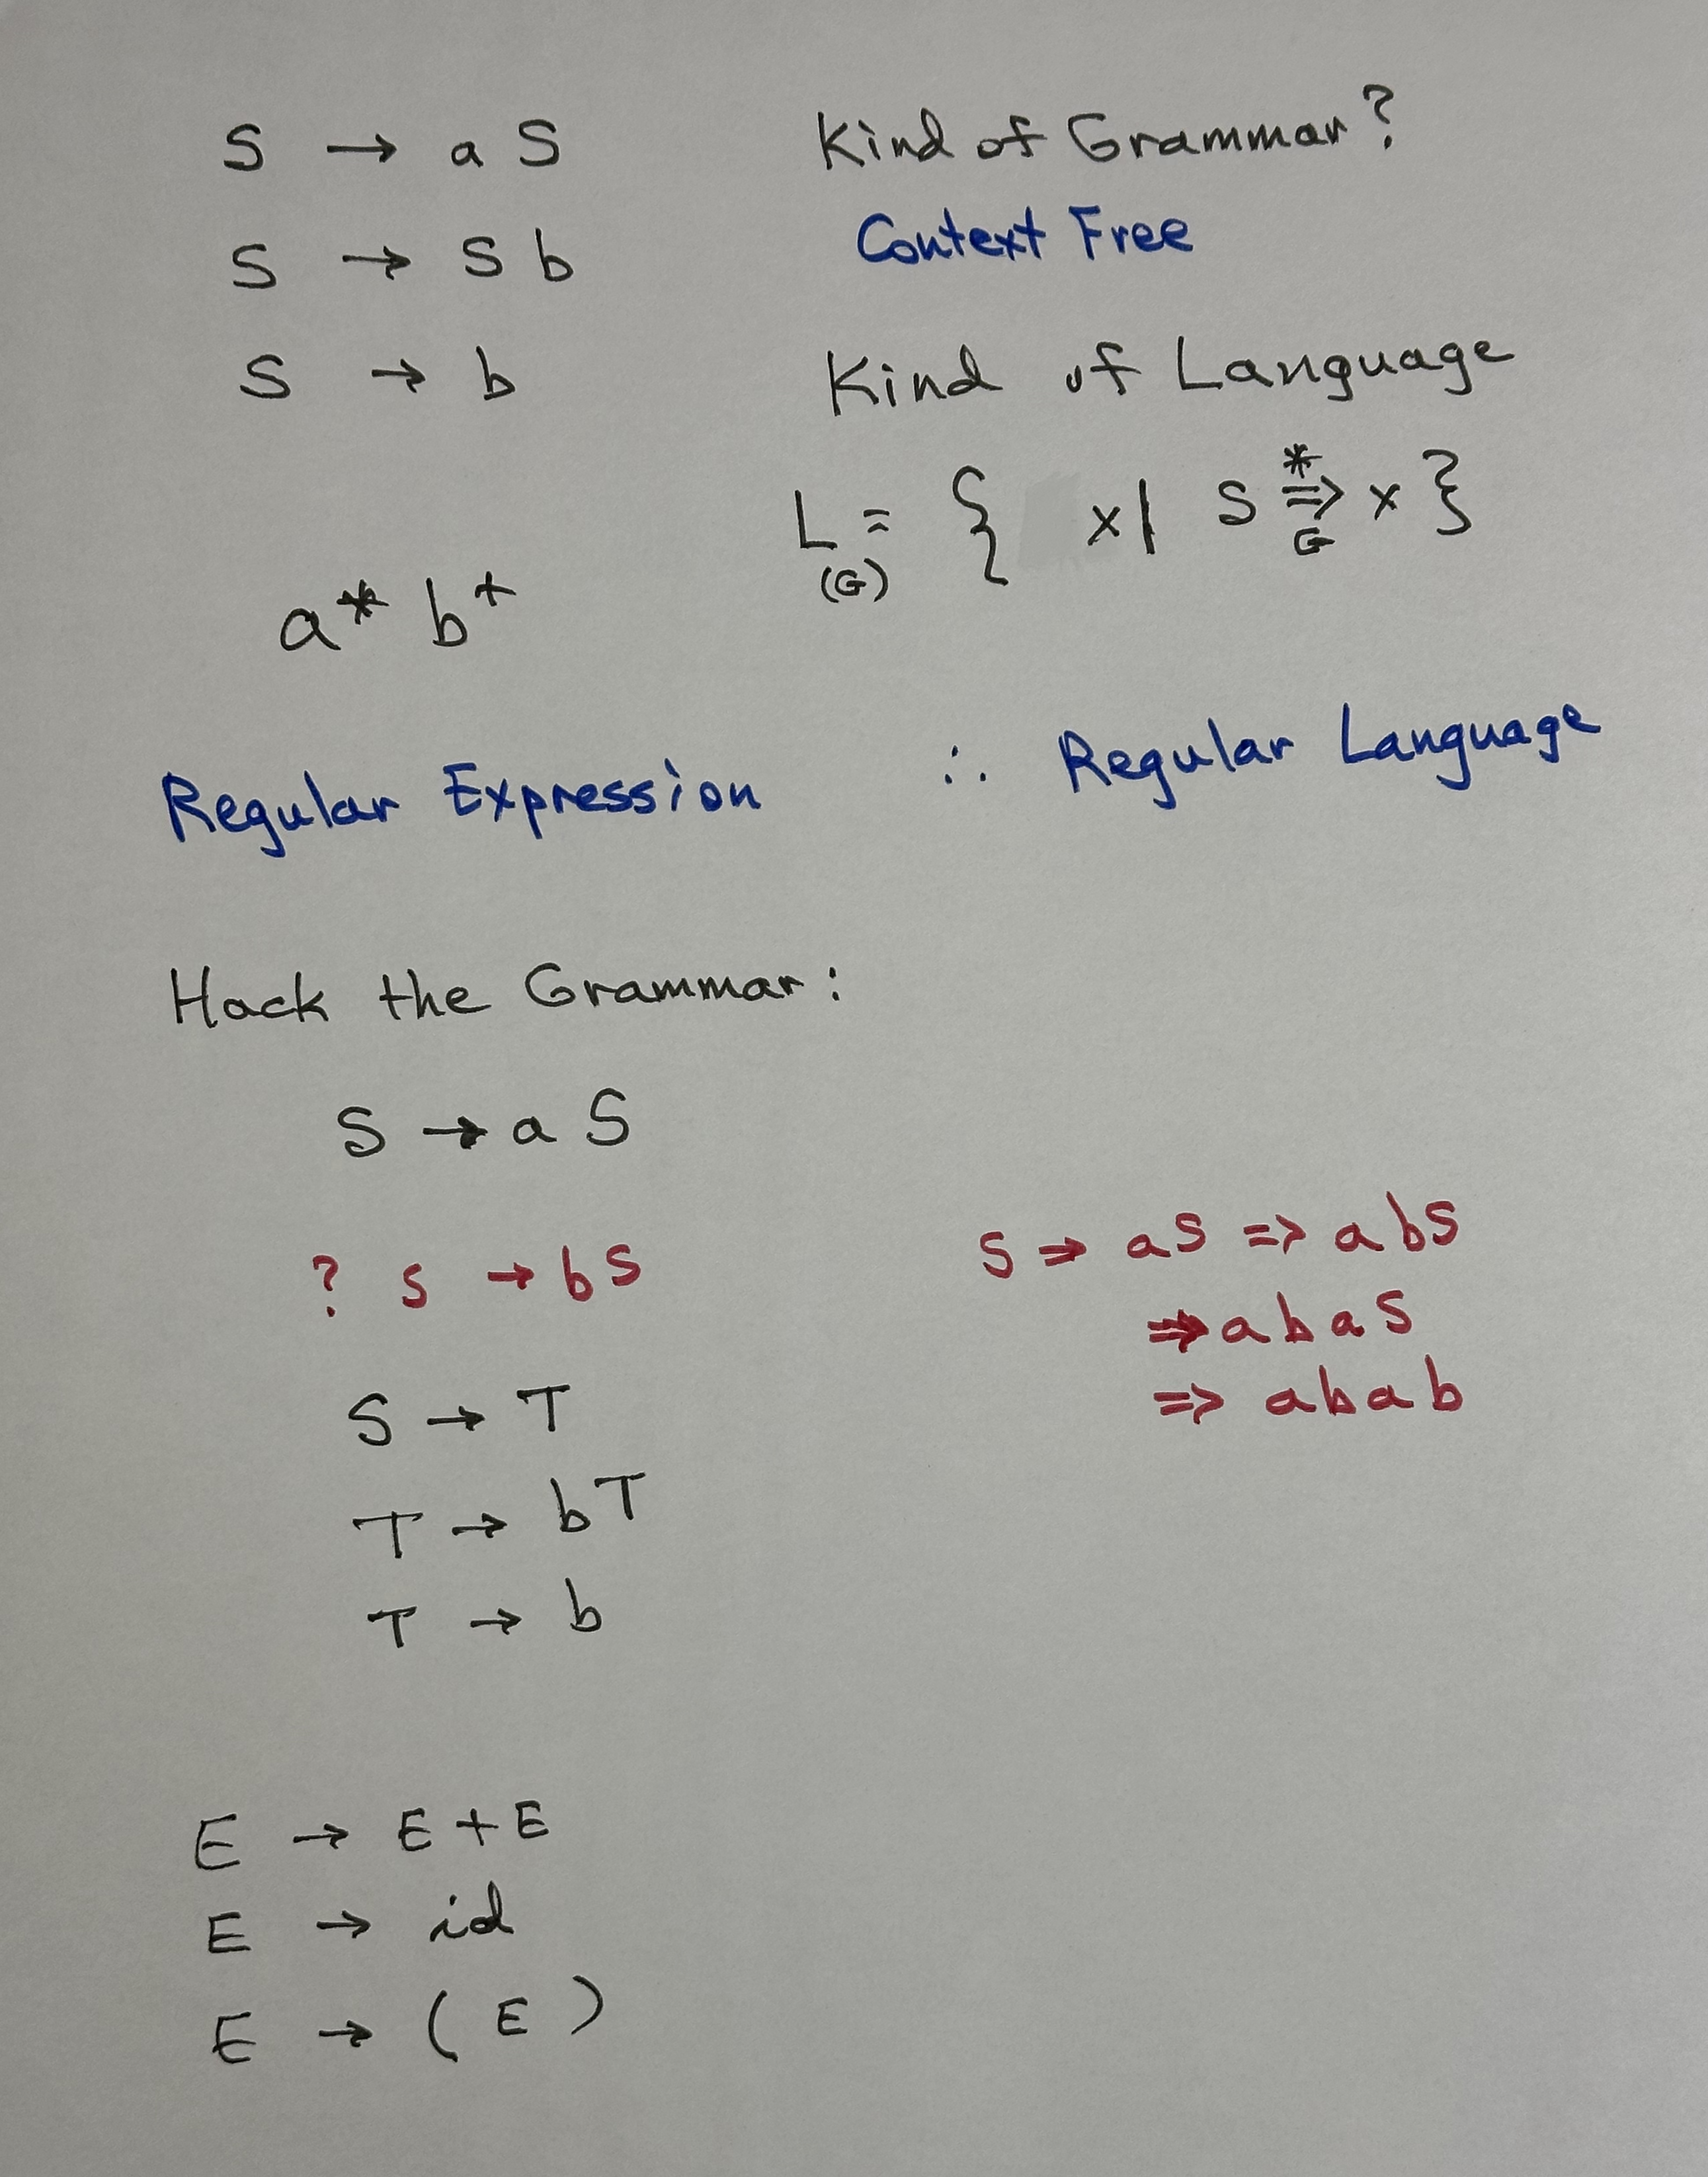 S → a S
Kind of Grammar?
S → S b
Context Free
S → b
Kind of Language
L(G) = { x | S *⇒G x }
a* b+
Regular Expression ∴ Regular Language
Hack the Grammar:
S → a S
? S → b S
S ⇒ a S ⇒ a b S
⇒ a b a S
⇒ a b a b
S → T
T → b T
T → b
E → E + E
E → id
E → ( E )